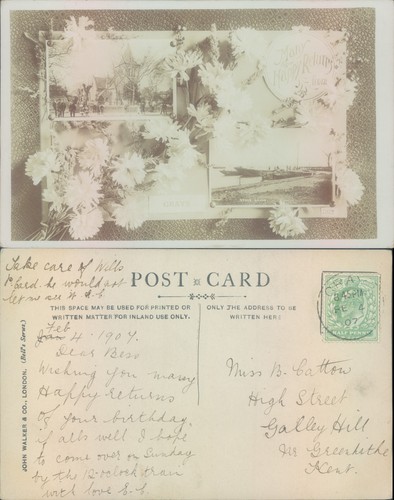 Happy Returns
Take care of Wills
P. Card. he would not
let us all
POST CARD
THIS SPACE MAY BE USED FOR PRINTED OR
WRITTEN MATTER FOR INLAND USE ONLY.
ONLY THE ADDRESS TO BE
WRITTEN HERE
JOHN WALKER & CO., LONDON. (Bell's Series.)
Feb
Jan 4. 1907.
Dear Bess
Wishing you many
Happy returns
of your birthday,
if alls well I hope
to come over on Sunday
by the 12 o'clock train
with love E.C
Miss B. Catton
High Street
Galley Hill
Nr Greenhithe
Kent.